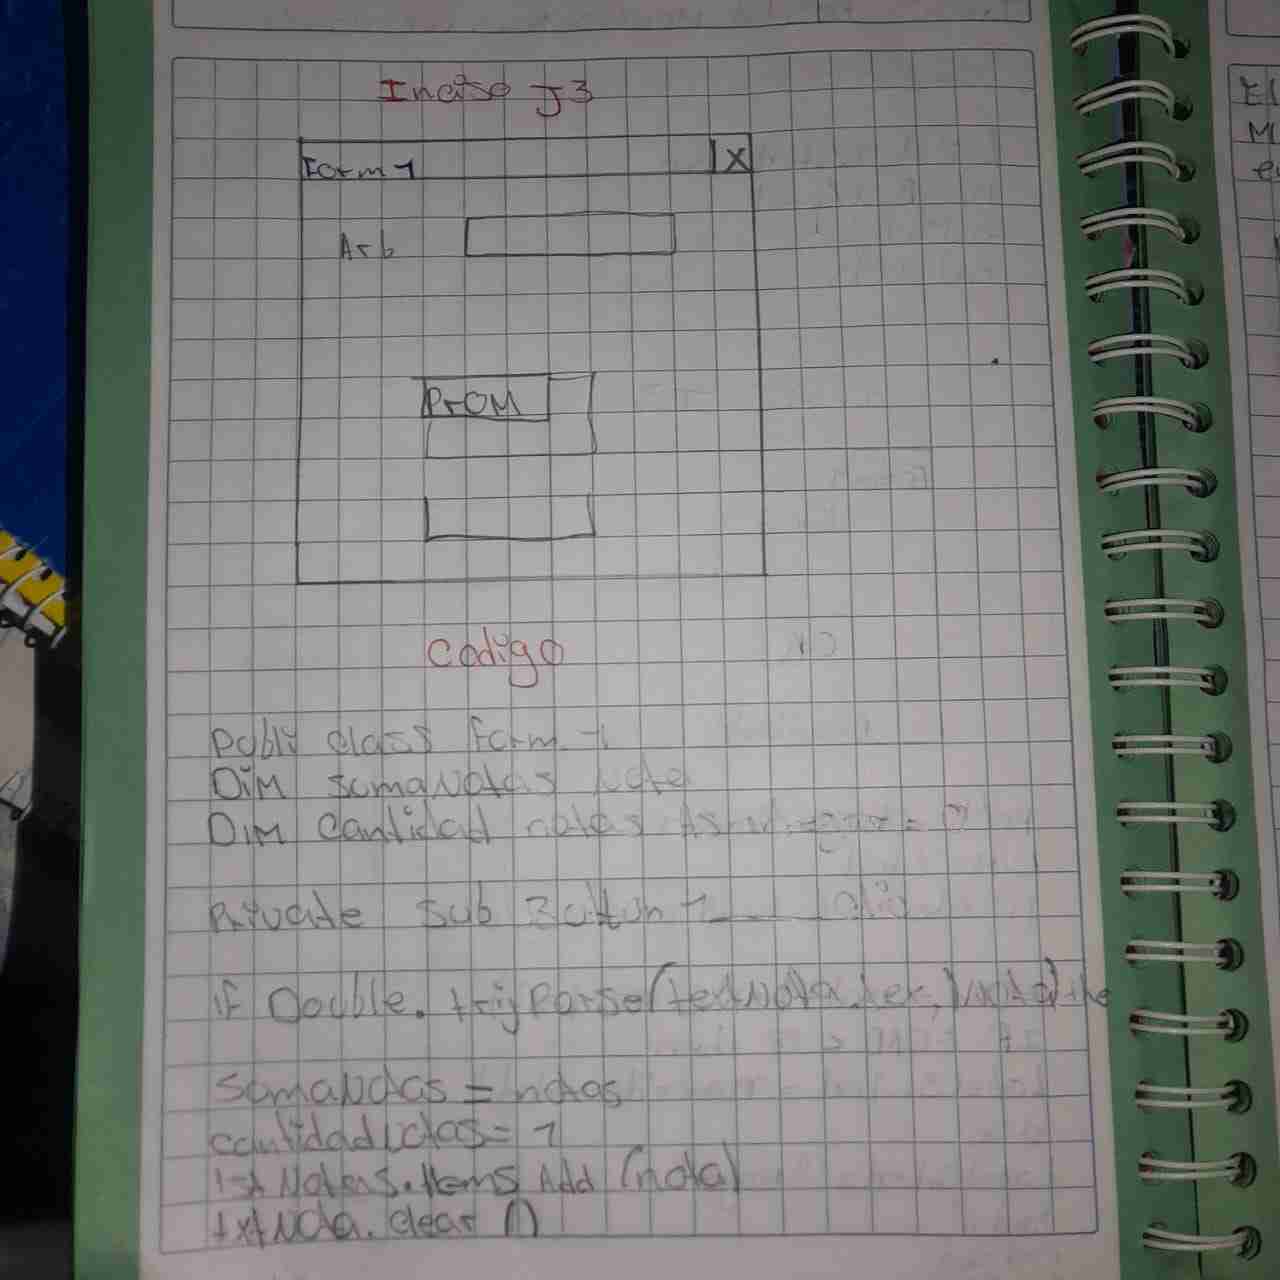 Inciso J3
Form 1
X
A+b
PrOM
Codigo
Publi class Form 1
DiM sumaNotas Note
DiM Cantidad notas As = 0
Private Sub Button 1 clic
if Double. tryParse(
sumaNotas = notas
cantidadNotas = 1
lst Notas. Items Add (nota)
txtNota. clear ()